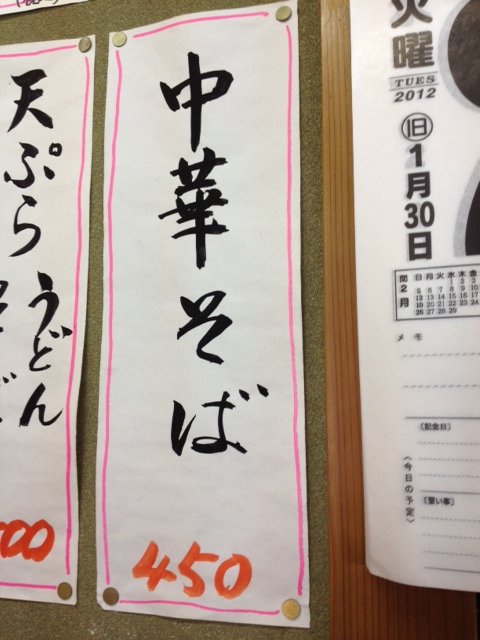 天ぷら
うどん
中華そば
450
火曜
TUES
2012
旧1月30日
閏2月
日月火水木金
1 2 3
5 6 7 8 9 10
12 13 14 15 16 17
19 20 21 22 23 24
26 27 28 29
メモ
〔記念日〕
〔習い事〕
(今日の予定)